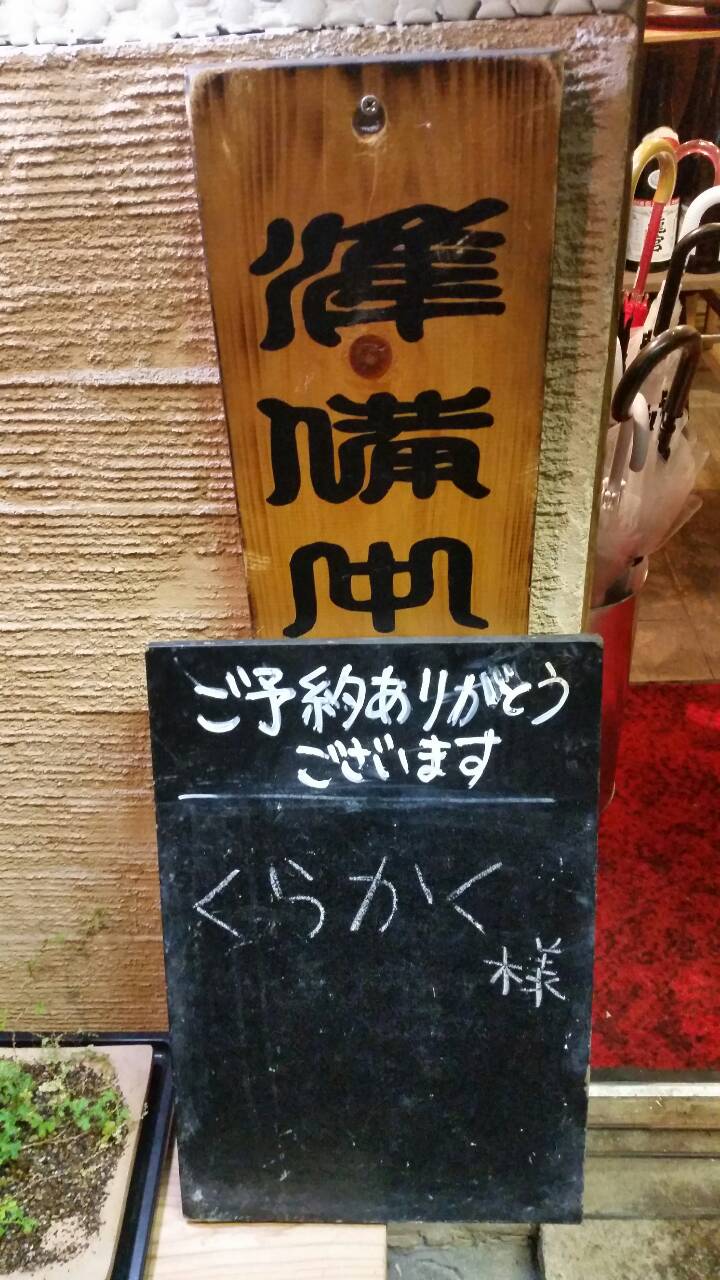 準備中
ご予約ありがとう
ございます
くらかく
様